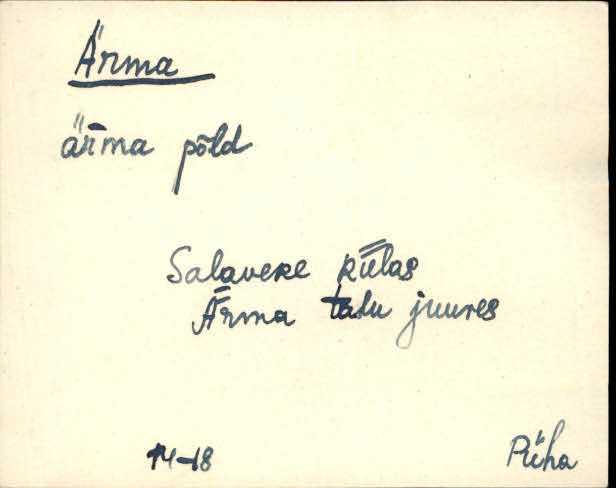 Ärma
ärma põld
Salavere külas
Ärma talu juures
14-18
Püha